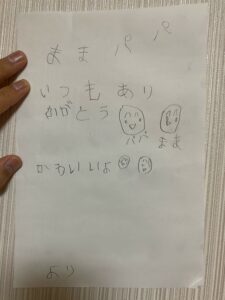 まま パパ
いつもあり
がとう
パパ まま
かわいいよ
より